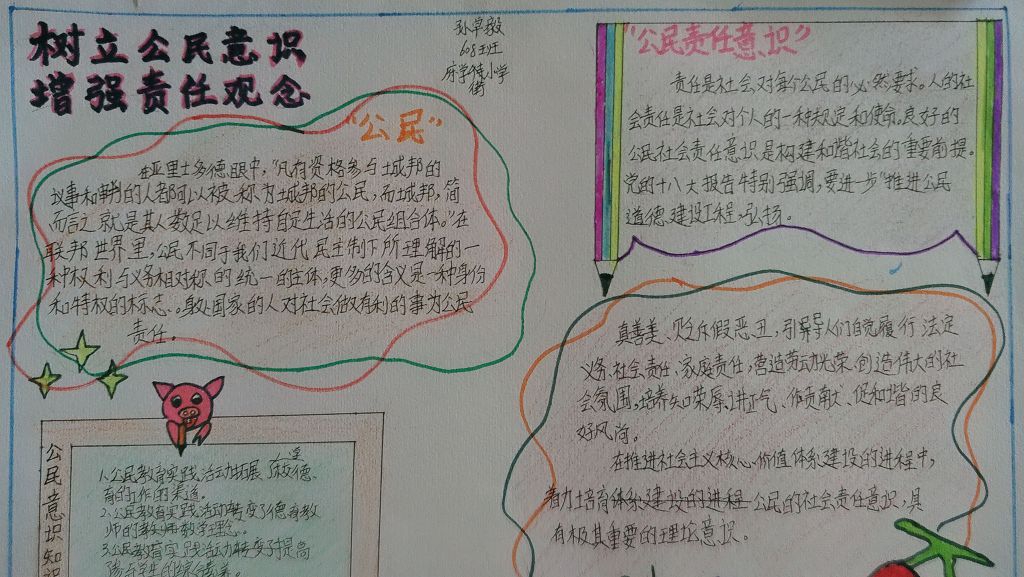 树立公民意识
增强责任观念
孙常毅
608班
牙学街小学
"公民"
在亚里士多德眼中,"凡有资格参与城邦的
议事和审判的人都可以被称为城邦的公民,而城邦,简
而言之就是其人数足以维持自足生活的公民组合体。"在
联邦世界里,公民不同于我们近代民主制下所理解的一
种权利与义务相对称的统一的主体,更多的含义是一种身份
和特权的标志。身处国家的人对社会做有利的事为公民
责任。
"公民责任意识"
责任是社会对每个公民的必然要求。人的社
会责任是社会对个人的一种规定和使命。良好的
公民社会责任意识是构建和谐社会的重要前提。
党的十八大报告特别强调,要进一步"推进公民
道德建设工程,弘扬。
真善美、贬斥假恶丑,引导人们自觉履行法定
义务、社会责任、家庭责任,营造劳动光荣、创造伟大的社
会氛围,培养知荣辱、讲正气、作贡献、促和谐的良
好风尚。
在推进社会主义核心价值体系建设的进程中,
着力培育体系建设的进程公民的社会责任意识,具
有极其重要的理论意识。
公民意识知识
1.公民教育实践活动拓展
有的工作的渠道。
2.公民教育实践活动转变了德育教
师的教师教学理念。
3.公民教育实践活动转变了提高